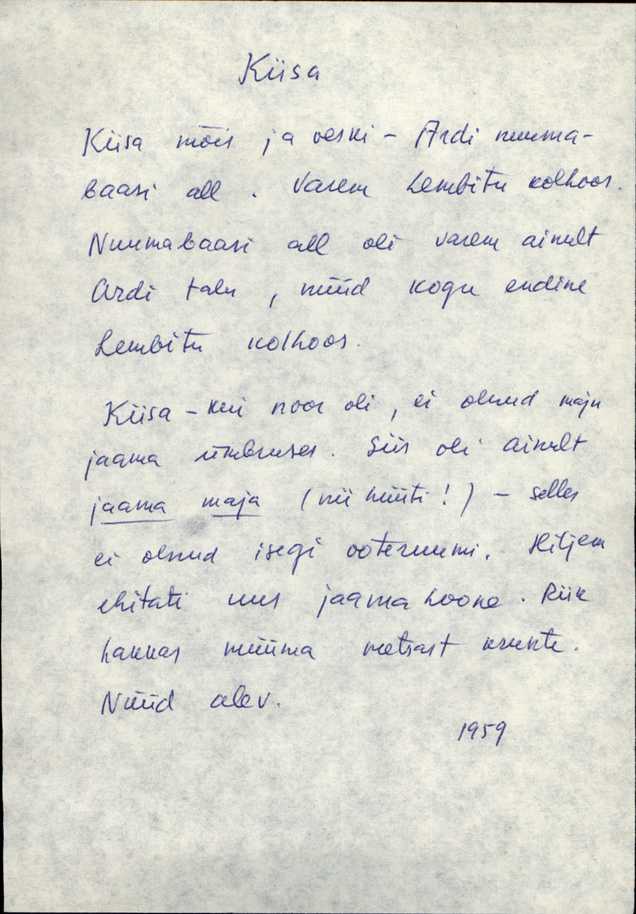 Kiisa
Kiisa mõis ja veski – Ardi nuuma-
baasi all. Varem Lembitu kolhoos.
Nuumabaasi all oli varem ainult
Ardi talu, nüüd kogu endine
Lembitu kolhoos.
Kiisa – kui noor oli, ei olnud maju
jaama ümbruses. Siis oli ainult
jaama maja (nii hüüti!) – selles
ei olnud isegi ooteruumi. Hiljem
ehitati uus jaamahoone. Riik
hakkas müüma metsast krunte.
Nüüd alev.
1959